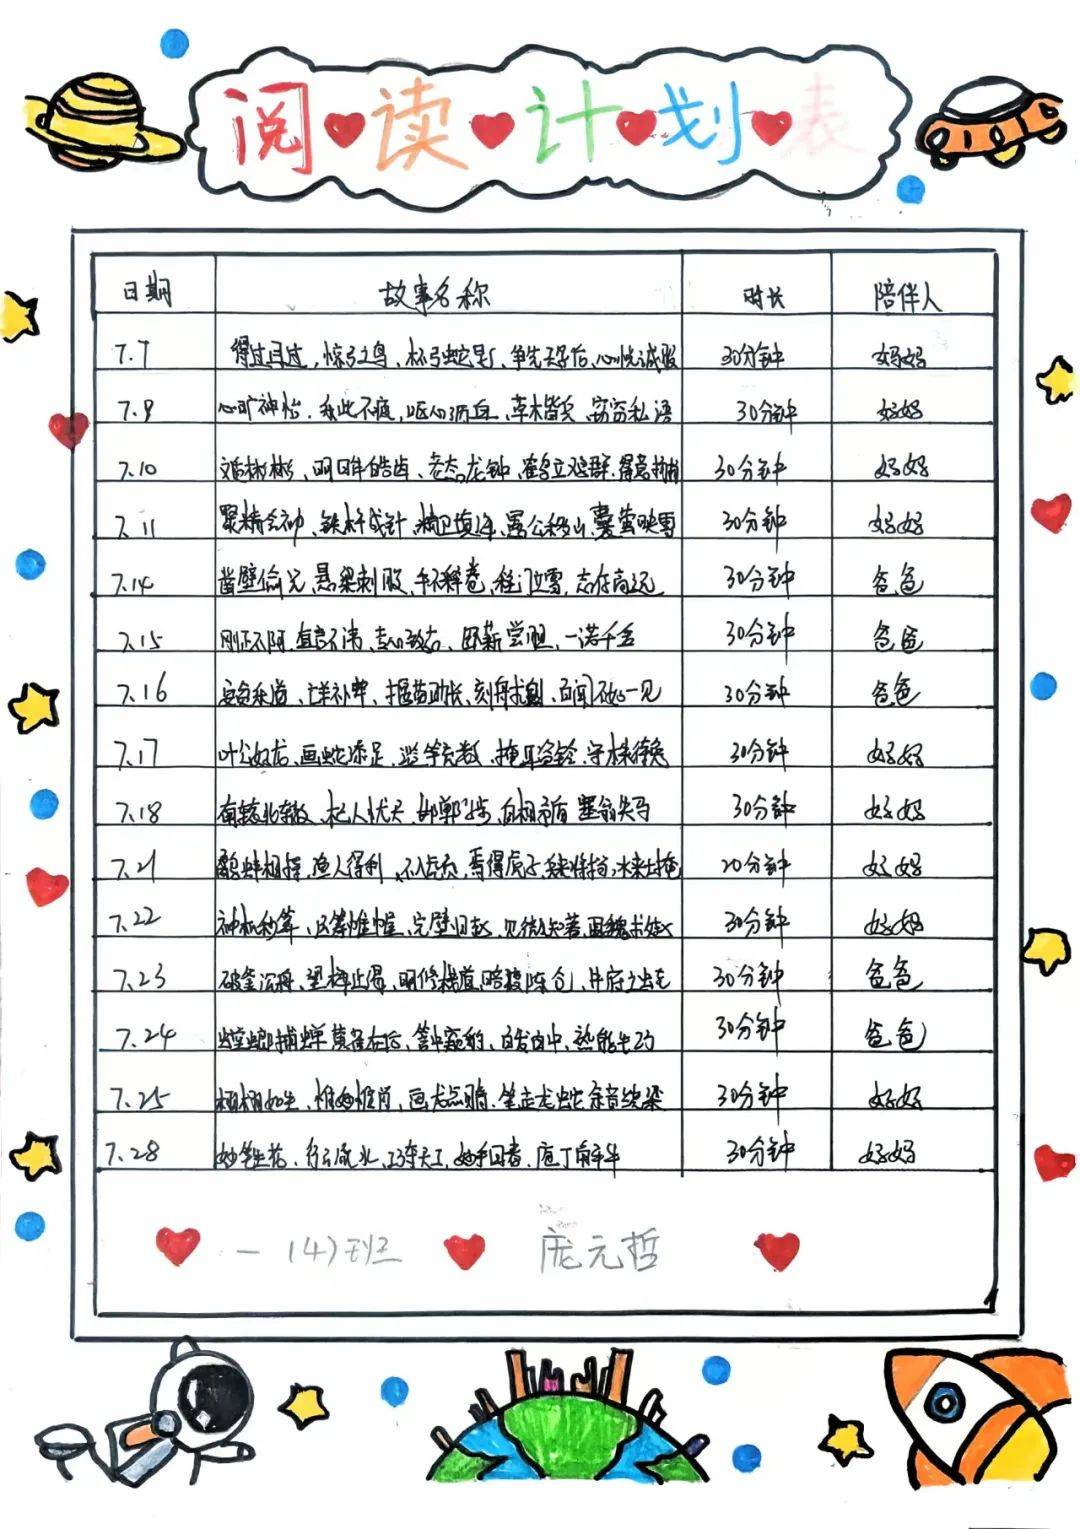 阅读计划表
日期 故事名称 时长 陪伴人
7.7 得过且过、惊弓之鸟、杯弓蛇影、争先恐后、心悦诚服 30分钟 妈妈
7.9 心旷神怡、乐此不疲、呕心沥血、草木皆兵、窃窃私语 30分钟 妈妈
7.10 文质彬彬、明眸皓齿、老态龙钟、鹤立鸡群、得意扬扬 30分钟 妈妈
7.11 聚精会神、铁杵成针、精卫填海、愚公移山、囊萤映雪 30分钟 妈妈
7.14 凿壁偷光、悬梁刺股、手不释卷、程门立雪、志存高远 30分钟 爸爸
7.15 刚正不阿、直言不讳、卧薪尝胆、一诺千金 30分钟 爸爸
7.16 安贫乐道、亡羊补牢、揠苗助长、刻舟求剑、百闻不如一见 30分钟 爸爸
7.17 叶公好龙、画蛇添足、滥竽充数、掩耳盗铃、守株待兔 30分钟 妈妈
7.18 南辕北辙、杞人忧天、邯郸学步、自相矛盾 塞翁失马 30分钟 妈妈
7.21 鹬蚌相择,渔人得利、不入虎穴,焉得虎子、兵来将挡,水来土掩 20分钟 妈妈
7.22 神机妙算、运筹帷幄、完璧归赵、见微知著、围魏救赵 30分钟 妈妈
7.23 破釜沉舟、望梅止渴、明修栈道,暗度陈仓、井底之蛙 30分钟 爸爸
7.24 螳螂捕蝉黄雀在后、管中窥豹、百发百中、熟能生巧 30分钟 爸爸
7.25 栩栩如生、惟妙惟肖、画龙点睛、笔走龙蛇 余音绕梁 30分钟 妈妈
7.28 妙笔生花、行云流水、巧夺天工、妙手回春、庖丁解牛 30分钟 妈妈
一(4)班 庞元哲